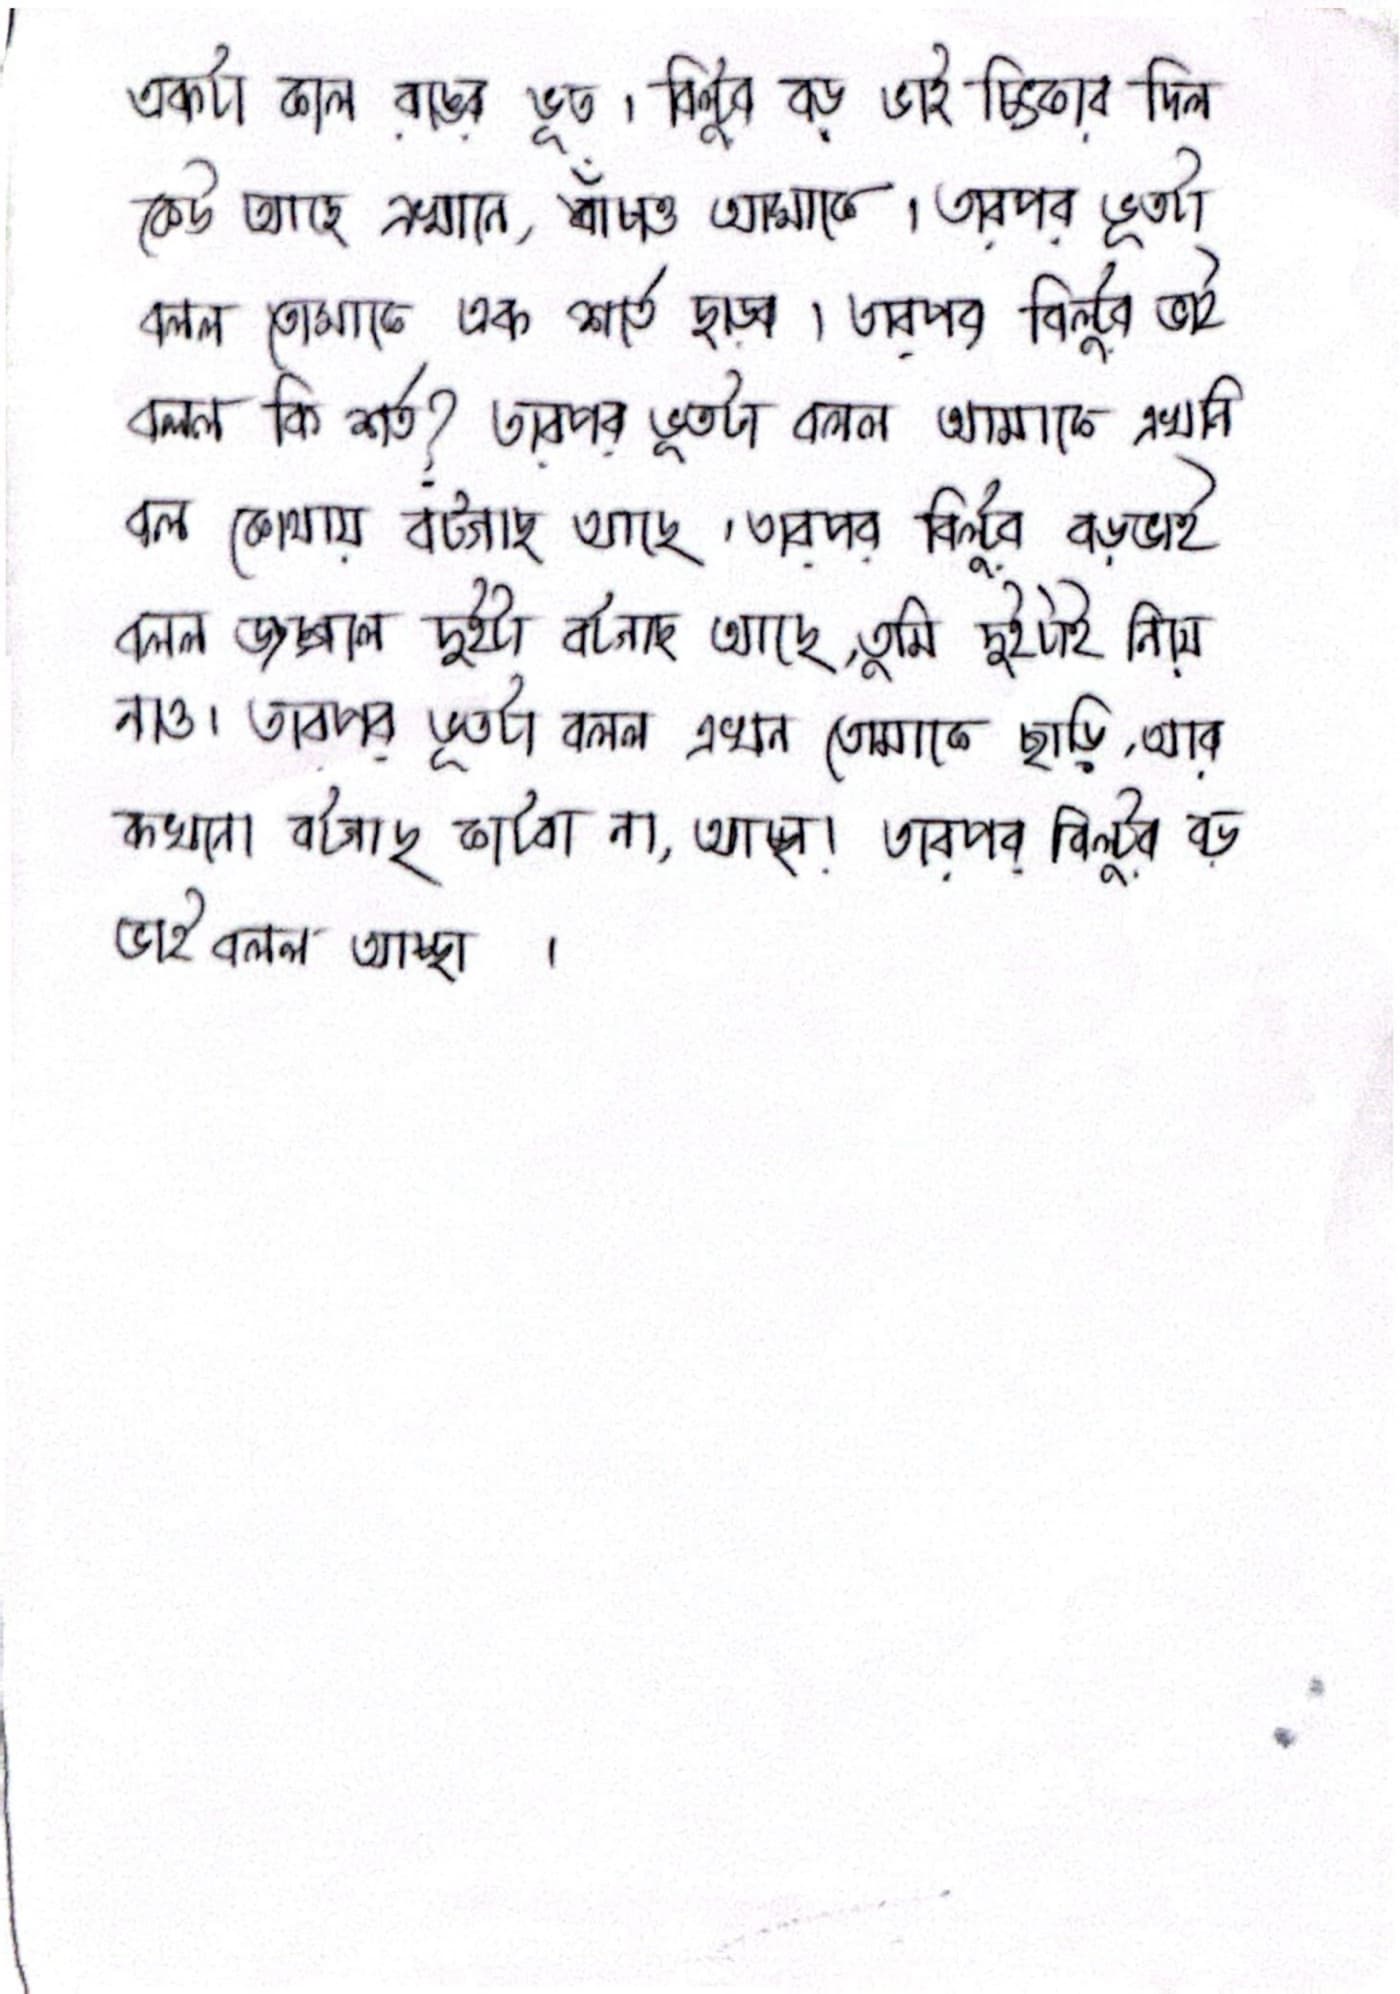 একটা কাল রঙের ভূত। বিল্টুর বড় ভাই চিৎকার দিল
কেউ আছে এখানে, বাঁচাও আমাকে। তারপর ভূতটা
বলল তোমাকে এক শর্তে ছাড়ব। তারপর বিল্টুর ভাই
বলল কি শর্ত? তারপর ভূতটা বলল আমাকে এখনি
বল কোথায় বটগাছ আছে। তারপর বিল্টুর বড়ভাই
বলল জঙ্গলে দুইটা বটগাছ আছে, তুমি দুইটাই নিয়ে
নাও। তারপর ভূতটা বলল এখন তোমাকে ছাড়ি, আর
কখনো বটগাছ কাটবা না, আচ্ছা! তারপর বিল্টুর বড়
ভাই বলল আচ্ছা।